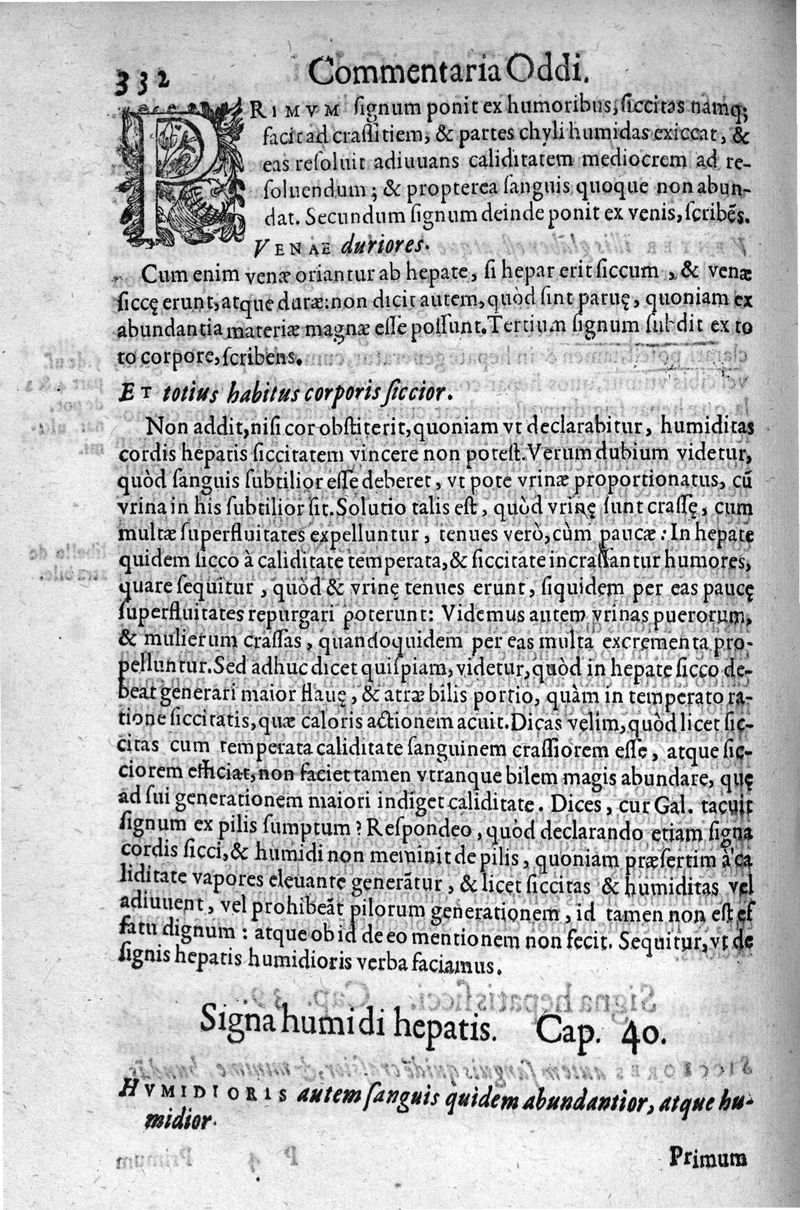 332
Commentaria Oddi.
PRIMVM ſignum ponit ex humoribus, ſiccitas namq;
facit ad craſſitiem, & partes chyli humidas exiccat, &
eas reſoluit adiuuans caliditatem mediocrem ad re-
ſoluendum; & propterea ſanguis quoque non abun-
dat. Secundum ſignum deinde ponit ex venis, ſcribẽs.
VENAE duriores.
Cum enim venæ oriantur ab hepate, ſi hepar erit ſiccum, & venæ
ſiccę erunt, atque duræ: non dicit autem, quòd ſint paruę, quoniam ex
abundantia materiæ magnæ eſſe poſſunt. Tertium ſignum ſubdit ex to
to corpore, ſcribens.
ET totius habitus corporis ſiccior.
Non addit, niſi cor obſtiterit, quoniam vt declarabitur, humiditas
cordis hepatis ſiccitatem vincere non poteſt. Verum dubium videtur,
quòd ſanguis ſubtilior eſſe deberet, vt pote vrinæ proportionatus, cũ
vrina in his ſubtilior ſit. Solutio talis eſt, quòd vrinę ſunt craſſę, cum
multæ ſuperfluitates expelluntur, tenues verò, cùm paucæ: In hepate
quidem ſicco à caliditate temperata, & ſiccitate incraſſantur humores,
quare ſequitur, quòd & vrinę tenues erunt, ſiquidem per eas paucę
ſuperfluitates repurgari poterunt: Videmus autem vrinas puerorum,
& mulierum craſſas, quandoquidem per eas multa excrementa pro-
pelluntur. Sed adhuc dicet quiſpiam, videtur, quòd in hepate ſicco de-
beat generari maior flauę, & atræ bilis portio, quàm in temperato ra-
tione ſiccitatis, quæ caloris actionem acuit. Dicas velim, quòd licet ſic-
citas cum temperata caliditate ſanguinem craſſiorem eſſe, atque ſic-
ciorem efficiat, non faciet tamen vtranque bilem magis abundare, quę
ad ſui generationem maiori indiget caliditate. Dices, cur Gal. tacuit
ſignum ex pilis ſumptum? Reſpondeo, quòd declarando etiam ſigna
cordis ſicci, & humidi non meminit de pilis, quoniam præſertim à ca
liditate vapores eleuante generãtur, & licet ſiccitas & humiditas vel
adiuuent, vel prohibeãt pilorum generationem, id tamen non eſt eſ
fatu dignum: atque ob id de eo mentionem non fecit. Sequitur, vt de
ſignis hepatis humidioris verba faciamus.
Signa humidi hepatis. Cap. 40.
HVMIDIORIS autem ſanguis quidem abundantior, atque hu-
midior.
Primum